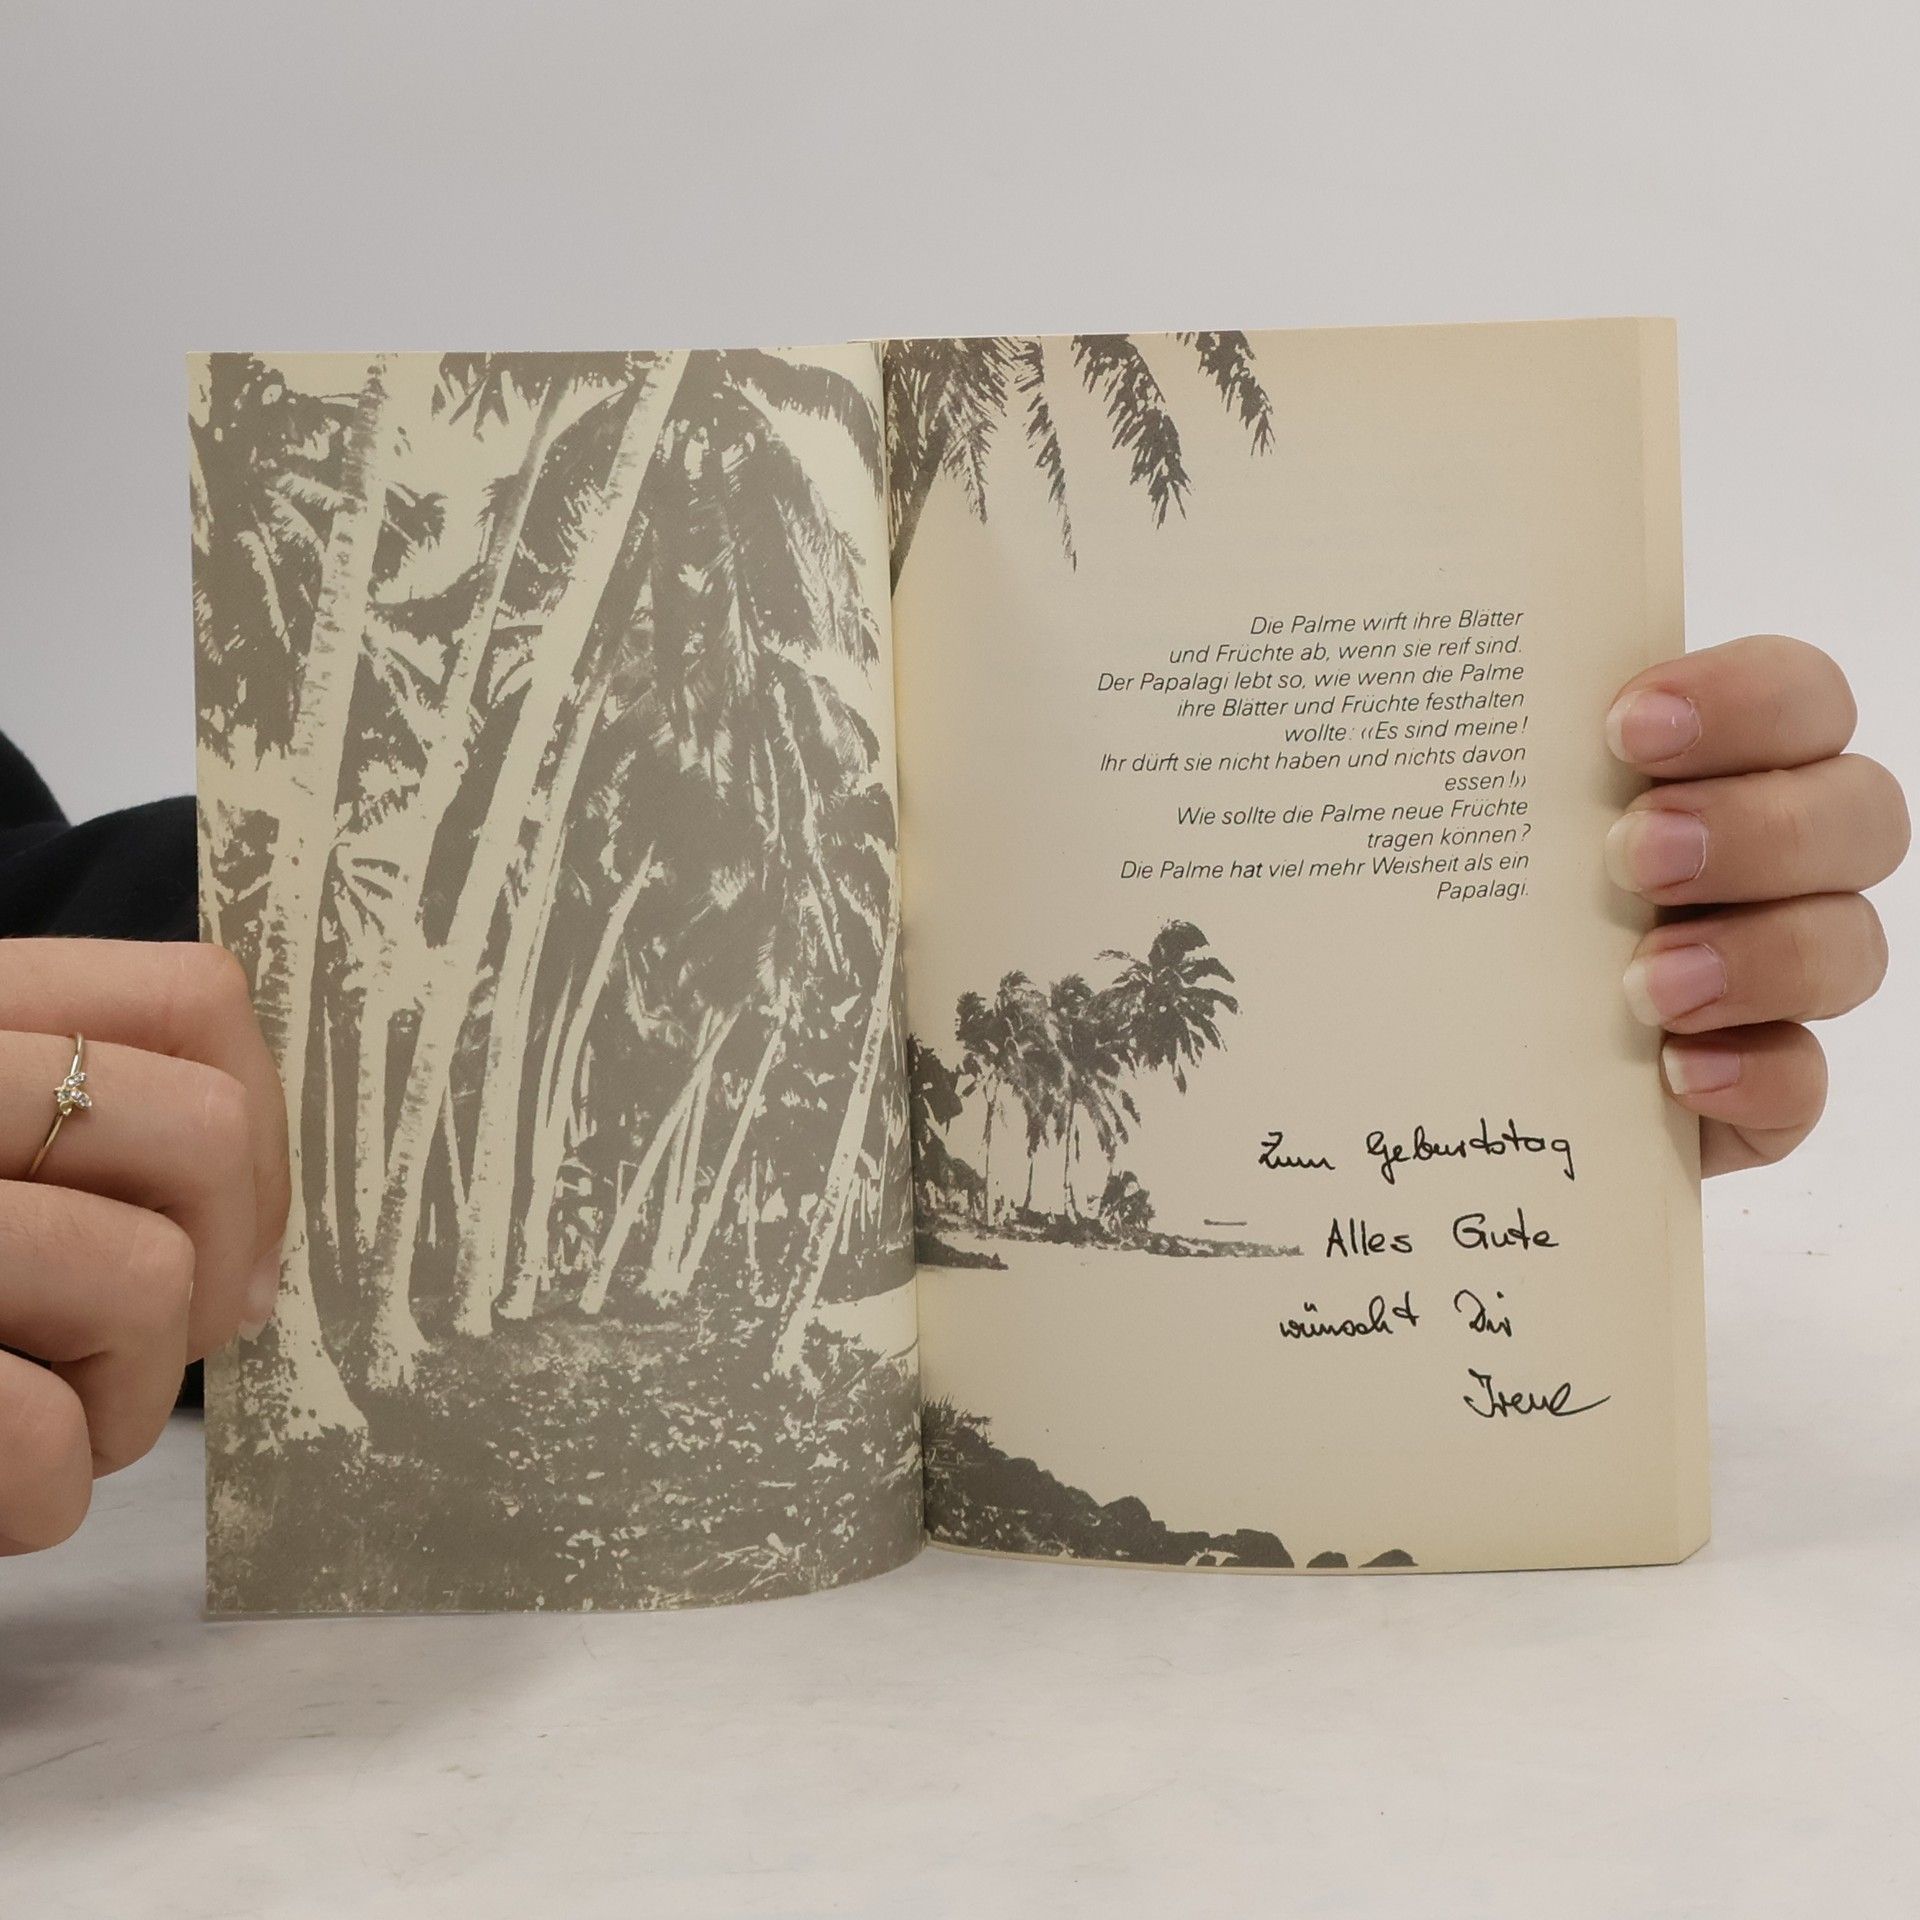 Die Palme wirft ihre Blätter
und Früchte ab, wenn sie reif sind.
Der Papalagi lebt so, wie wenn die Palme
ihre Blätter und Früchte festhalten
wollte: ‹‹Es sind meine!
Ihr dürft sie nicht haben und nichts davon
essen!››
Wie sollte die Palme neue Früchte
tragen können?
Die Palme hat viel mehr Weisheit als ein
Papalagi.
Zum Geburtstag
Alles Gute
wünscht Dir
Irene